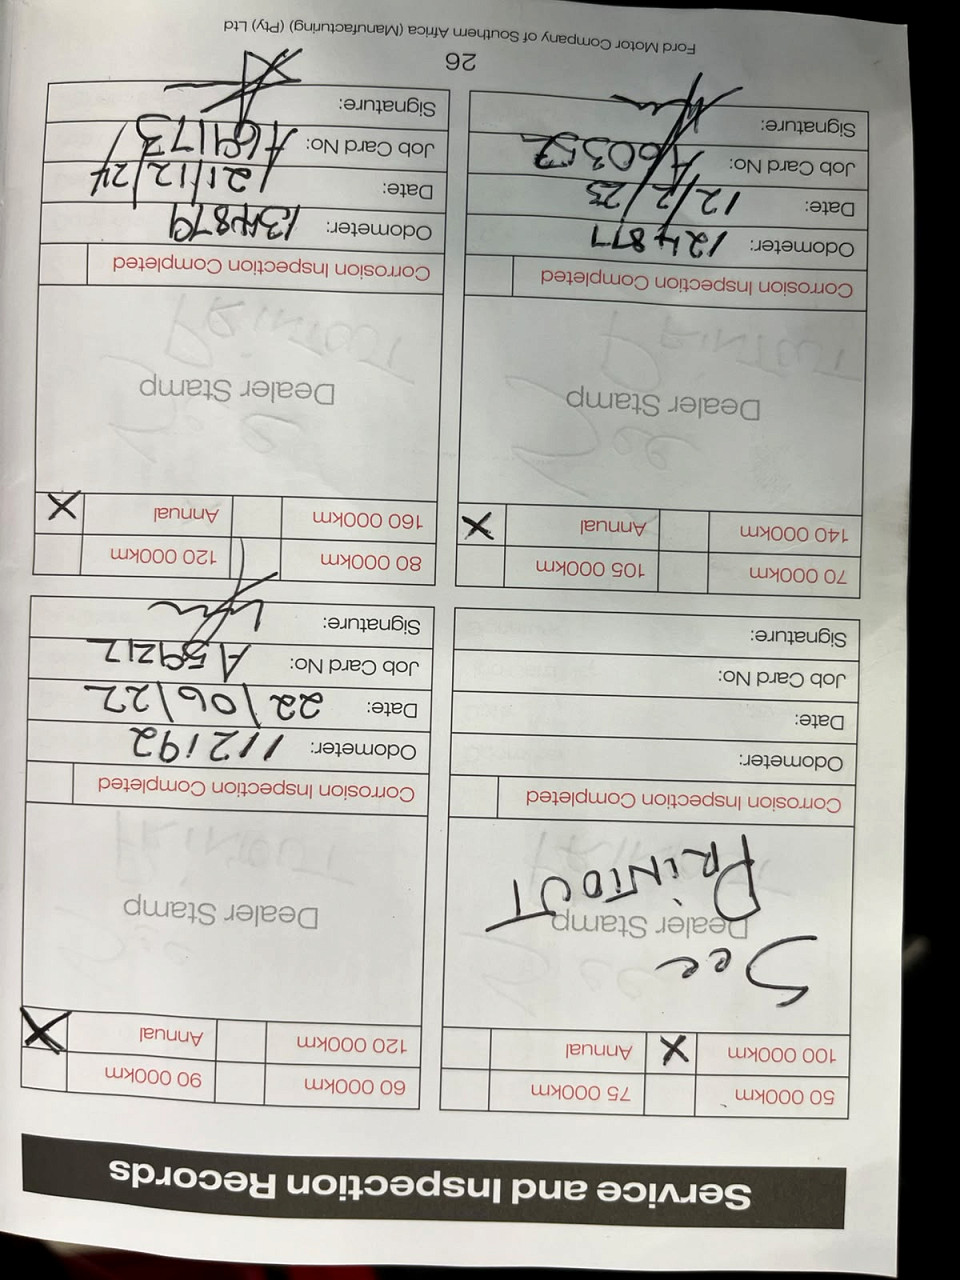 Service and Inspection Records
50 000km 75 000km
100 000km X Annual
Dealer Stamp
See
PRINTOUT
Corrosion Inspection Completed
Odometer:
Date:
Job Card No:
Signature:
60 000km 90 000km
120 000km Annual X
Dealer Stamp
Corrosion Inspection Completed
Odometer: 112192
Date: 22/06/22
Job Card No: A59212
Signature:
70 000km 105 000km
140 000km Annual X
Dealer Stamp
Corrosion Inspection Completed
Odometer: 124877
Date: 12/2/23
Job Card No: A60352
Signature:
80 000km 120 000km
160 000km Annual X
Dealer Stamp
Corrosion Inspection Completed
Odometer: 134879
Date: 21/12/24
Job Card No: A69173
Signature:
26
Ford Motor Company of Southern Africa (Manufacturing) (Pty) Ltd